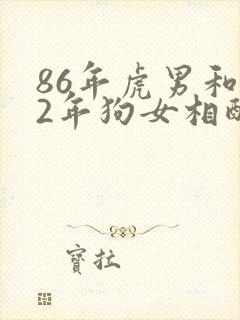 86年虎男和
2年狗女相
寶拉